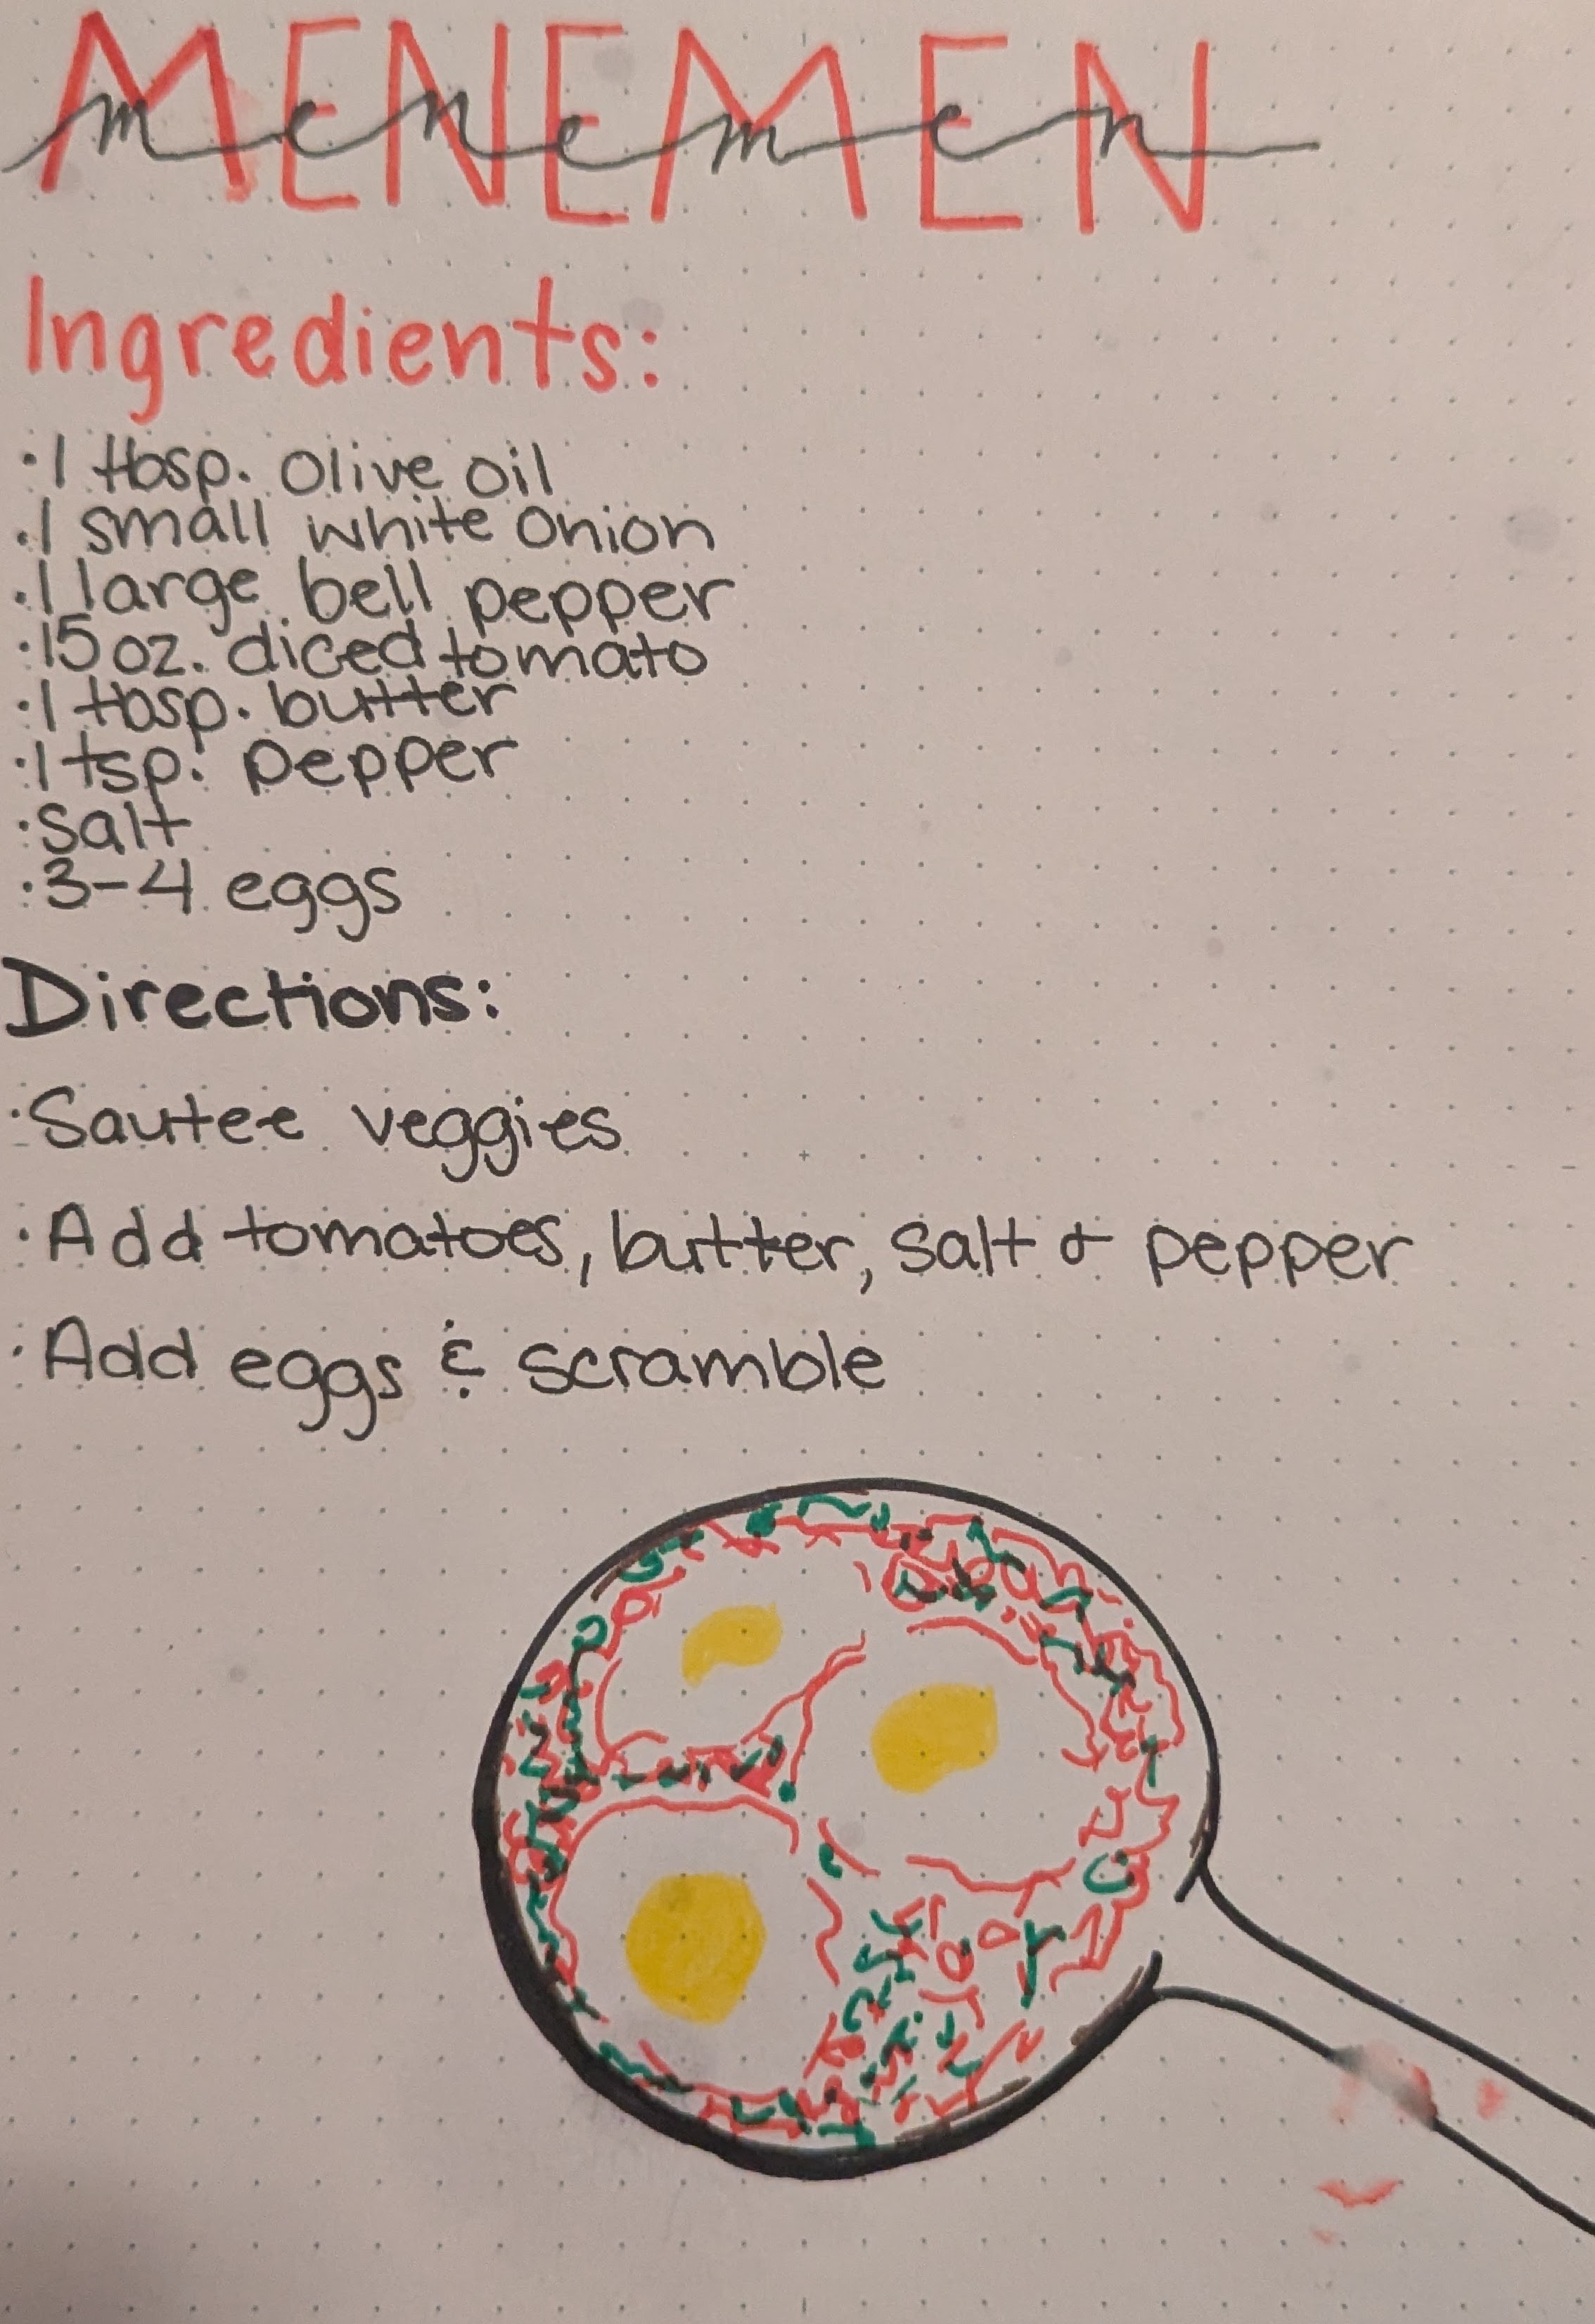 MENEMEN
menemen
Ingredients:
·1 tbsp. olive oil
·1 small white onion
·1 large bell pepper
·15 oz. diced tomato
·1 tbsp. butter
·1 tsp. pepper
·salt
·3-4 eggs
Directions:
·Sautee veggies
·Add tomatoes, butter, salt & pepper
·Add eggs & scramble